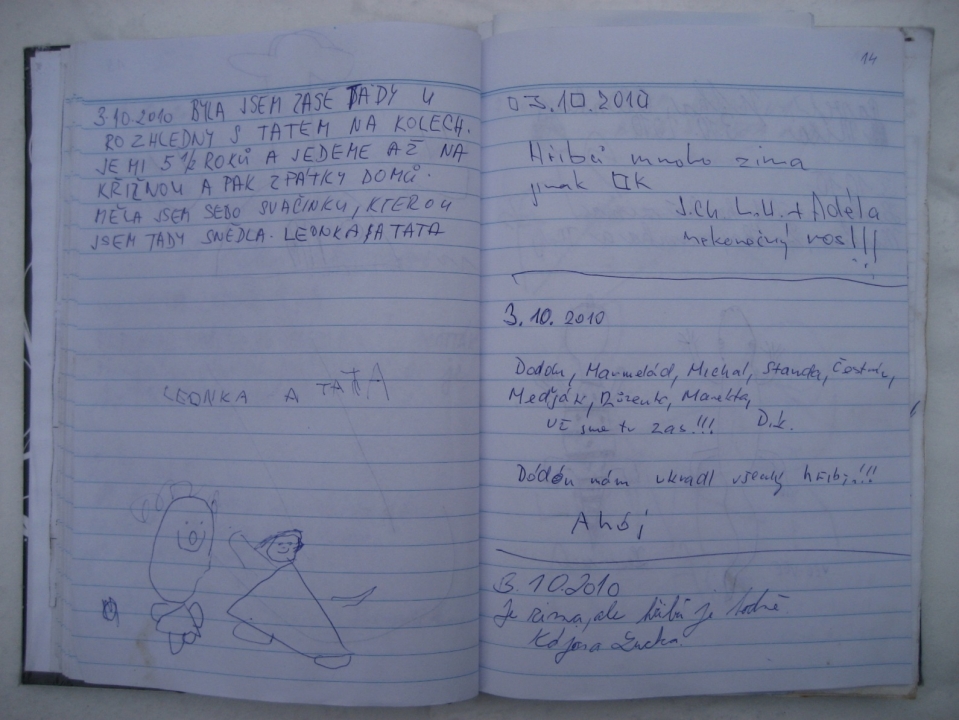 3.10.2010 BYLA JSEM ZASE TADY U
ROZHLEDNY S TATEM NA KOLECH.
JE MI 5 1/2 ROKŮ A JEDEME AŽ NA
KŘIŽNOU A PAK ZPÁTKY DOMŮ.
MĚLA JSEM SEBO SVAČINKU, KTEROU
JSEM TADY SNĚDLA. LEONKA A TATA
LEONKA A TATA
14
3.10.2010
Hřibů mnoho zima
jinak OK
J.CH L.H. + Adéla
nekonečný ros!!!
3.10.2010
Marmelád, Michal, Standa,
Meďják, Markéta,
UŽ jsme tu zas!!! D.k.
Dódón nám ukradl všecky hřiby!!!
Ahój
3.10.2010
Je zima, ale hřibů je hodně.
Kájora Lucka